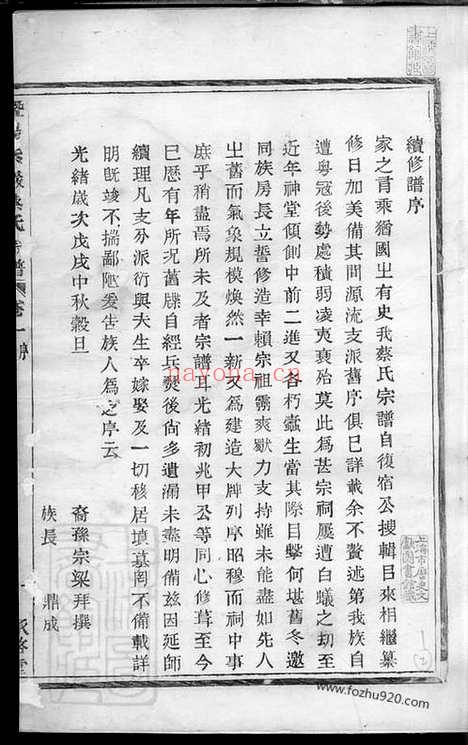 續修譜序
家之有乘猶國㞢有史我蔡氏宗譜自復宿公搜輯㠯來相繼纂
修日加美備其間源流支派舊序俱已詳載余不贅述第我族自
遭粵寇後勢處積弱凌夷衰殆莫此爲甚宗祠屢遭白蟻之刧至
近年神堂傾側中前二進又各朽蠹生當其際目擊何堪舊冬邀
同族房長立誓修造幸賴宗祖靈爽歇力支持雖未能盡如先人
㞢舊而氣象規模煥然一新又爲建造大牌列序昭穆而祠中事
庶乎稍盡焉所未及者宗譜耳光緒初兆甲公等同心修葺至今
巳歷有年所况舊牒自經兵燹後尙多遺漏未盡明備兹因延師
續理凡支分派衍與夫生卒嫁娶及一切移居墳墓罔不備載詳
明旣竣不揣鄙陋爰告族人爲之序云
光緒歲次戊戌中秋穀旦
裔孫宗梁拜撰
族長 鼎成
氏宗譜 卷一 序
nayona.cn
www.fozhu920.com